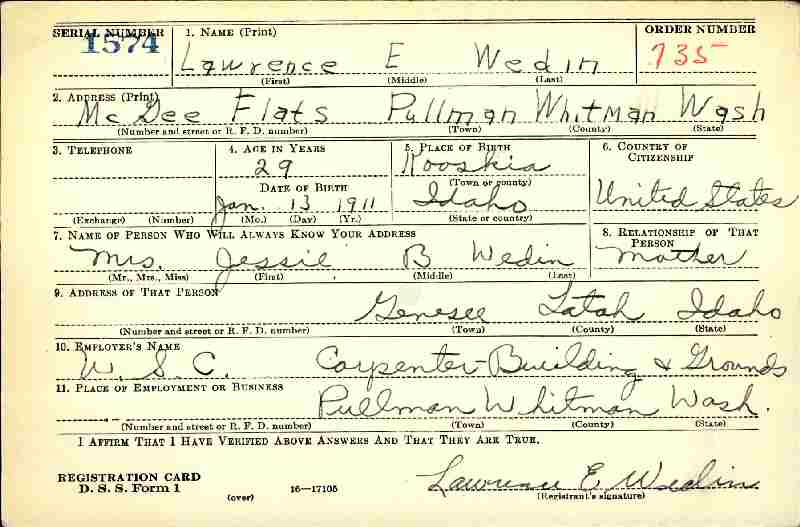 SERIAL NUMBER 1. NAME (Print) ORDER NUMBER
1574 Lawrence E Wedin 735
(First) (Middle) (Last)
2. ADDRESS (Print)
McGee Flats Pullman Whitman Wash
(Number and street or R. F. D. number) (Town) (County) (State)
3. TELEPHONE 4. AGE IN YEARS 5. PLACE OF BIRTH 6. COUNTRY OF CITIZENSHIP
29 Kooskia
DATE OF BIRTH (Town or county) United States
Jan. 13 1911 Idaho
(Exchange) (Number) (Mo.) (Day) (Yr.) (State or country)
7. NAME OF PERSON WHO WILL ALWAYS KNOW YOUR ADDRESS 8. RELATIONSHIP OF THAT PERSON
Mrs. Jessie B Wedin Mother
(Mr., Mrs., Miss) (First) (Middle) (Last)
9. ADDRESS OF THAT PERSON
Genesee Latah Idaho
(Number and street or R. F. D. number) (Town) (County) (State)
10. EMPLOYER'S NAME
W. S. C. Carpenter-Building & Grounds
11. PLACE OF EMPLOYMENT OR BUSINESS
Pullman Whitman Wash.
(Number and street or R. F. D. number) (Town) (County) (State)
I AFFIRM THAT I HAVE VERIFIED ABOVE ANSWERS AND THAT THEY ARE TRUE.
REGISTRATION CARD Lawrence E Wedin
D. S. S. Form 1 (over) 16—17105 (Registrant's signature)